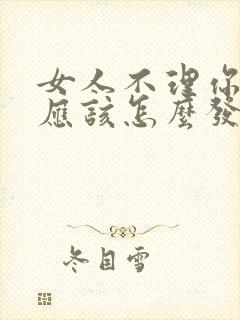 女人不理你
應該怎麼發
冬目雪